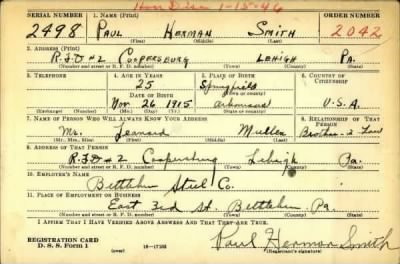 Hon Disc 1-15-46
SERIAL NUMBER 1. NAME (Print) ORDER NUMBER
2498 PAUL HERMAN SMITH 2042
(First) (Middle) (Last)
2. ADDRESS (Print)
R.F.D #2 COOPERSBURG LEHIGH PA.
(Number and street or R. F. D. number) (Town) (County) (State)
3. TELEPHONE 4. AGE IN YEARS 5. PLACE OF BIRTH 6. COUNTRY OF CITIZENSHIP
25 Springfield
DATE OF BIRTH (Town or county)
Nov 26 1915 Arkansas U.S.A.
(Exchange) (Number) (Mo.) (Day) (Yr.) (State or country)
7. NAME OF PERSON WHO WILL ALWAYS KNOW YOUR ADDRESS 8. RELATIONSHIP OF THAT PERSON
Mr. Leonard Mullen Brother-in-Law
(Mr., Mrs., Miss) (First) (Middle) (Last)
9. ADDRESS OF THAT PERSON
R.F.D #2 Coopersburg Lehigh Pa.
(Number and street or R. F. D. number) (Town) (County) (State)
10. EMPLOYER'S NAME
Bethlehem Steel Co.
11. PLACE OF EMPLOYMENT OR BUSINESS
East 3rd St. Bethlehem Pa.
(Number and street or R. F. D. number) (Town) (County) (State)
I AFFIRM THAT I HAVE VERIFIED ABOVE ANSWERS AND THAT THEY ARE TRUE.
REGISTRATION CARD
D. S. S. Form 1 (over) 16-17105 Paul Herman Smith
(Registrant's signature)